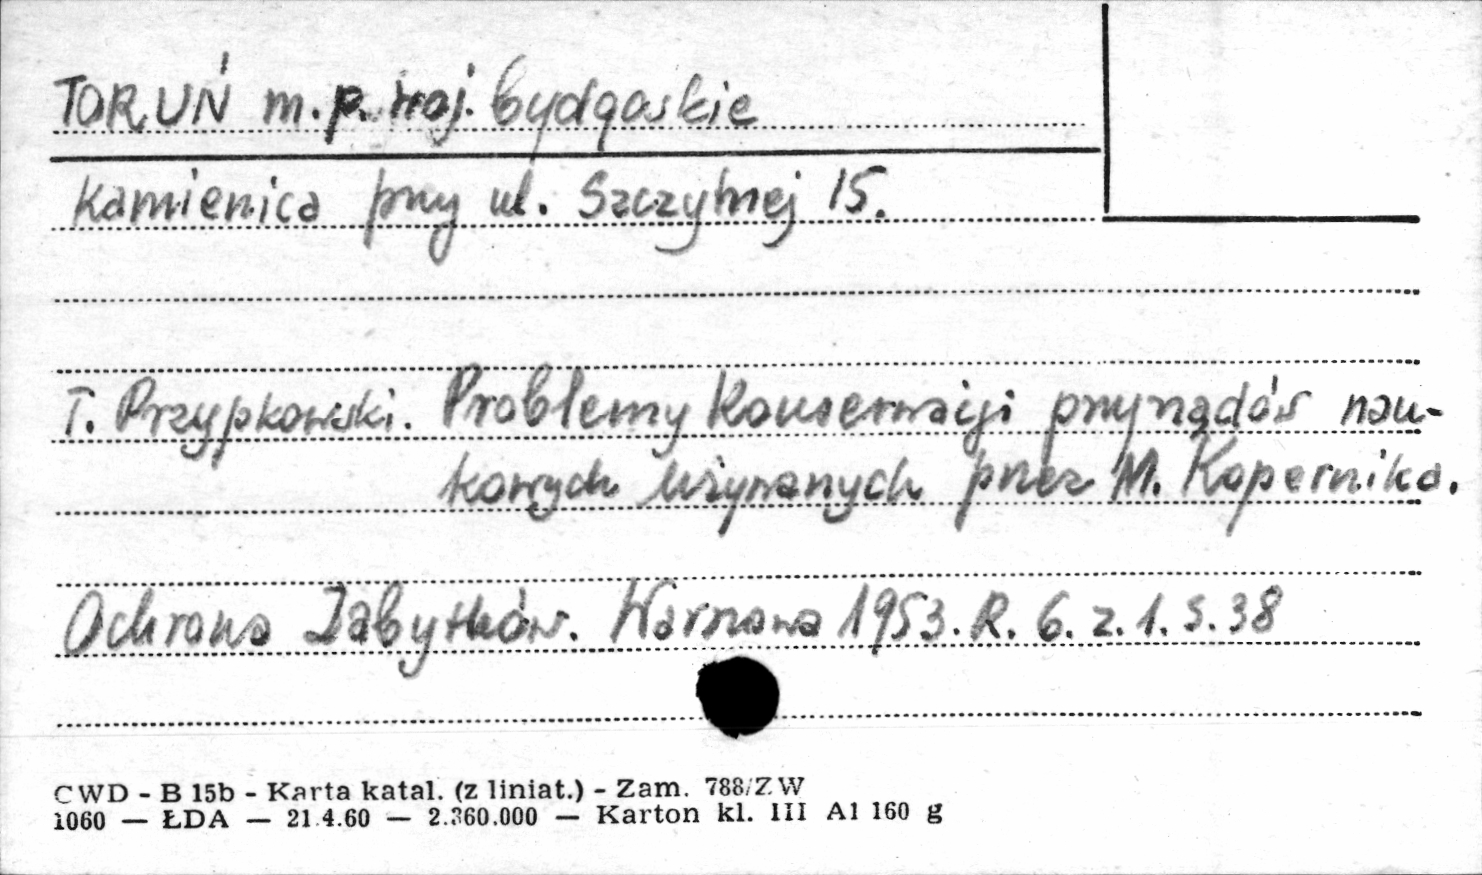 TORUŃ m.p. woj. bydgoskie
Kamienica przy ul. Szczytnej 15.
T. Przypkowski. Problemy Konserwacji przyrządów nau-
kowych używanych przez M. Kopernika.
Ochrona Zabytków. Warszawa 1953. R. 6. z. 1. s. 38
CWD - B 15b - Karta katal. (z liniat.) - Zam. 788/ZW
1060 — ŁDA — 21.4.60 — 2.360.000 — Karton kl. III A1 160 g